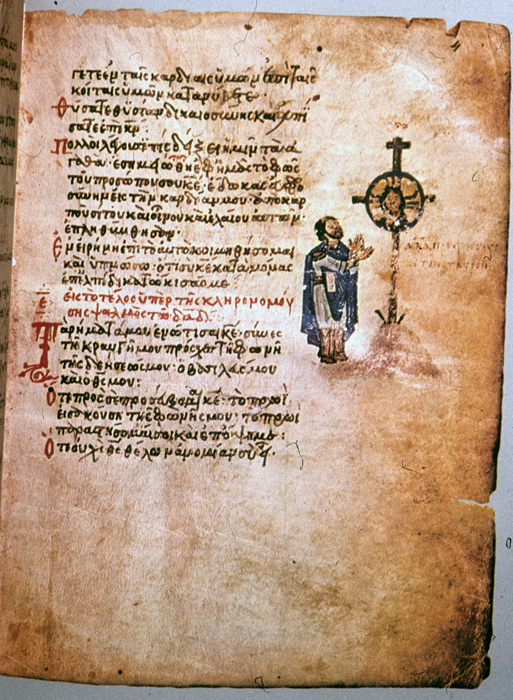 γετε ἐν ταῖς καρδίαις ὑμῶν ἐπὶ ταῖς
κοίταις ὑμῶν κατανύγητε·
Θύσατε θυσίαν δικαιοσύνης καὶ ἐλπί
σατε ἐπὶ κν·
Πολλοὶ λέγουσι τίς δείξει ἡμῖν τὰ ἀ
γαθά· ἐσημειώθη ἐφ ἡμᾶς τὸ φῶς
τοῦ προσώπου σου κε· ἔδωκας εὐφρο
σύνην εἰς τὴν καρδίαν μου· ἀπὸ καρ
ποῦ σίτου καὶ οἴνου καὶ ἐλαίου αὐτῶν·
ἐπληθύνθησαν·
Ἐν εἰρήνη ἐπὶ τὸ αὐτὸ κοιμηθήσομαι
καὶ ὑπνώσω· ὅτι σὺ κε κατὰ μόνας
ἐπ ἐλπίδι κατώκισάς με
Ε εἰς τὸ τέλος ὑπὲρ τῆς κληρονομού
σης ψαλμὸς τῶ δαδ
Τὰ ῥήματά μου ἐνώτισαι κε· σύνες
τῆς κραυγῆς μου πρόσχες τῆ φωνῆ
τῆς δεήσεώς μου· ὁ βασιλεύς μου
καὶ ὁ θς μου·
Ὅτι πρὸς σὲ προσεύξομαι κε· τὸ πρωὶ
εἰσακούση τῆς φωνῆς μου· τὸ πρωὶ
παραστήσομαί σοι καὶ ἐπόψει με:
Ὅτι οὐχὶ θς θέλων ἀνομίαν σὺ εἶ·